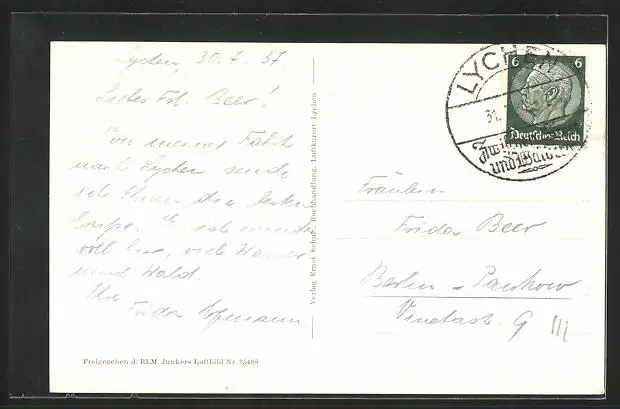 Lychen, 30.7.37.
Liebes Frl. Beer!
Von meiner Fahrt
nach Lychen sende
ich Ihnen die besten
Grüße. Es ist wunder
voll hier, viel Wasser
und Wald.
Ihre
Frida Hofmann.
Verlag Ernst Schulz, Buchhandlung, Luftkurort Lychen
Freigegeben d. RLM Junkers Luftbild Nr. 35468
LYCHEN
31.
und Wald
6 6
Deutsches Reich
Fräulein
Frida Beer
Berlin - Pankow
Vinetastr. 9 III